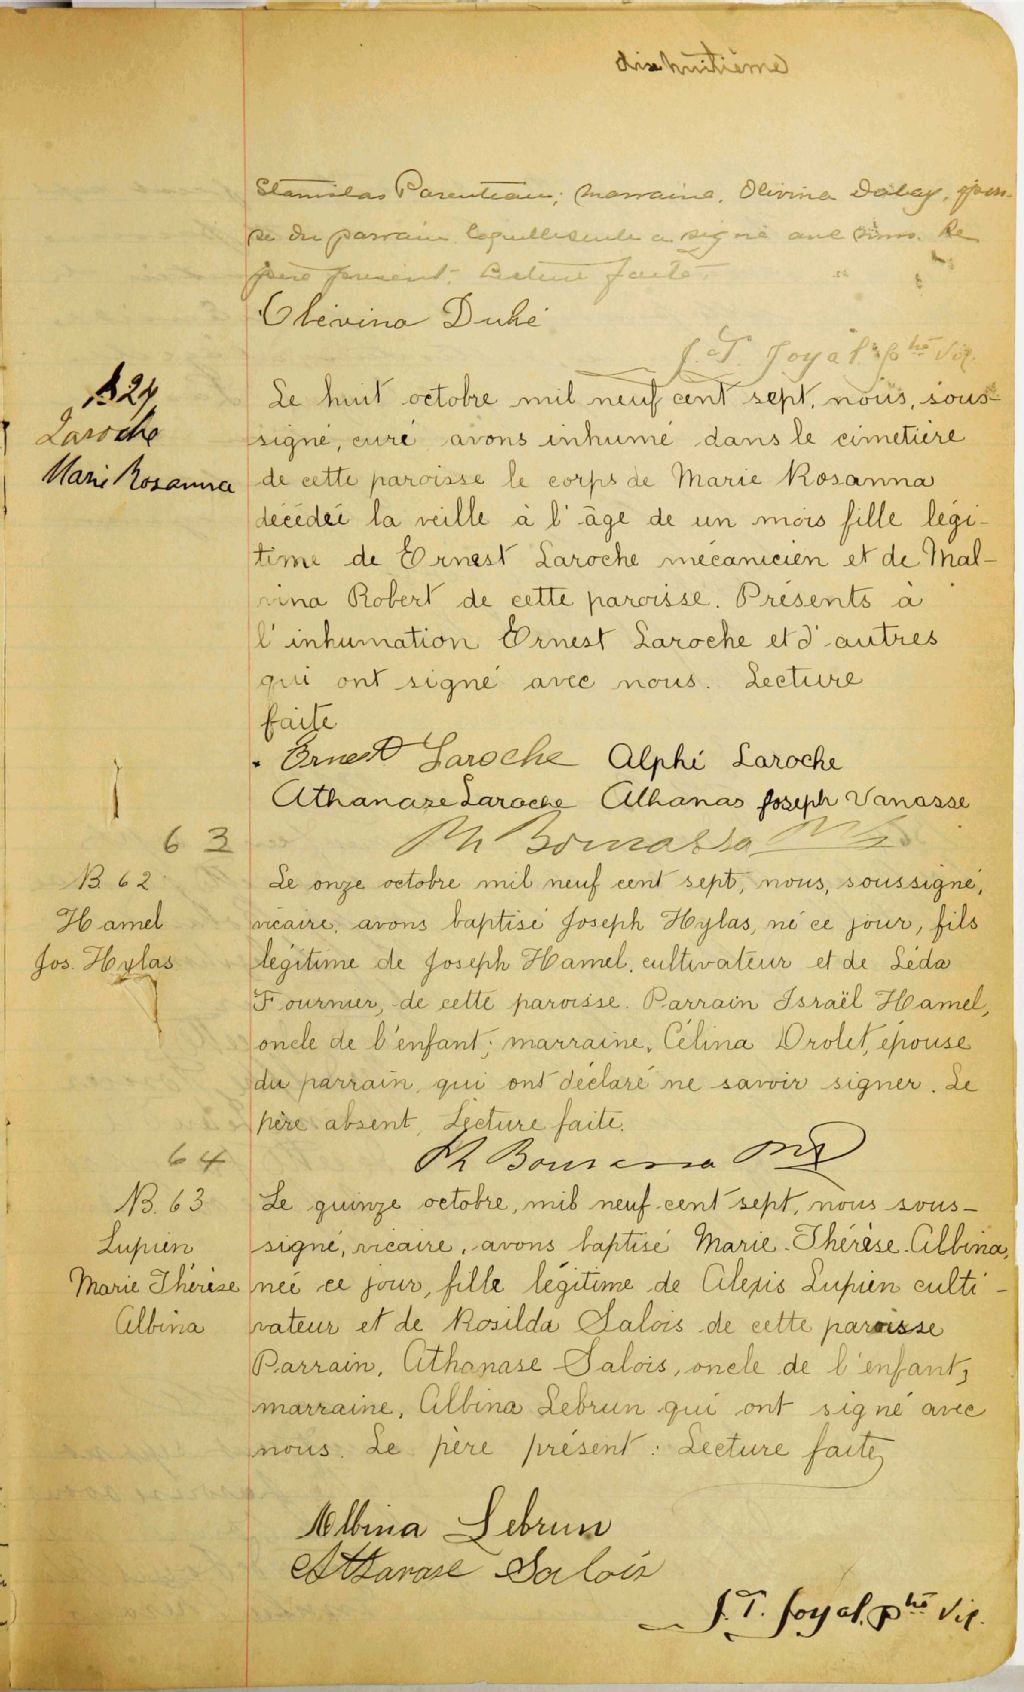 dix huitième
Stanislas Parenteau; marraine, Olivina Dubey, épou-
se du parrain laquelle seule a signé avec nous. Le
père présent. Lecture faite.
Olévina Duhé
J. T. Joyal, ptre Vic.
S 24
Laroche
Marie Rosanna
Le huit octobre mil neuf cent sept, nous, sous-
signé, curé avons inhumé dans le cimetière
de cette paroisse le corps de Marie Rosanna
décédée la veille à l'âge de un mois fille légi-
time de Ernest Laroche mécanicien et de Mal-
vina Robert de cette paroisse. Présents à
l'inhumation Ernest Laroche et d'autres
qui ont signé avec nous. Lecture
faite
Ernest Laroche Alphé Laroche
Athanaze Laroche Athanas Joseph Vanasse
Ph Bourassa
63
B 62
Hamel
Jos. Hylas
Le onze octobre mil neuf cent sept, nous, soussigné,
vicaire, avons baptisé Joseph Hylas, né ce jour, fils
légitime de Joseph Hamel, cultivateur et de Léda
Fournier, de cette paroisse. Parrain Israël Hamel,
oncle de l'enfant; marraine, Célina Drolet, épouse
du parrain, qui ont déclaré ne savoir signer. Le
père absent, Lecture faite.
Ph Bourassa
64
B. 63
Lupien
Marie Thérèse
Albina
Le quinze octobre, mil neuf cent sept, nous sous-
signé, vicaire, avons baptisé Marie-Thérèse-Albina,
née ce jour, fille légitime de Alexis Lupien culti-
vateur et de Rosilda Salois de cette paroisse
Parrain, Athanase Salois, oncle de l'enfant;
marraine, Albina Lebrun qui ont signé avec
nous. Le père présent: Lecture faite
Albina Lebrun
Athanase Salois
J. T. Joyal, Ptre Vic.